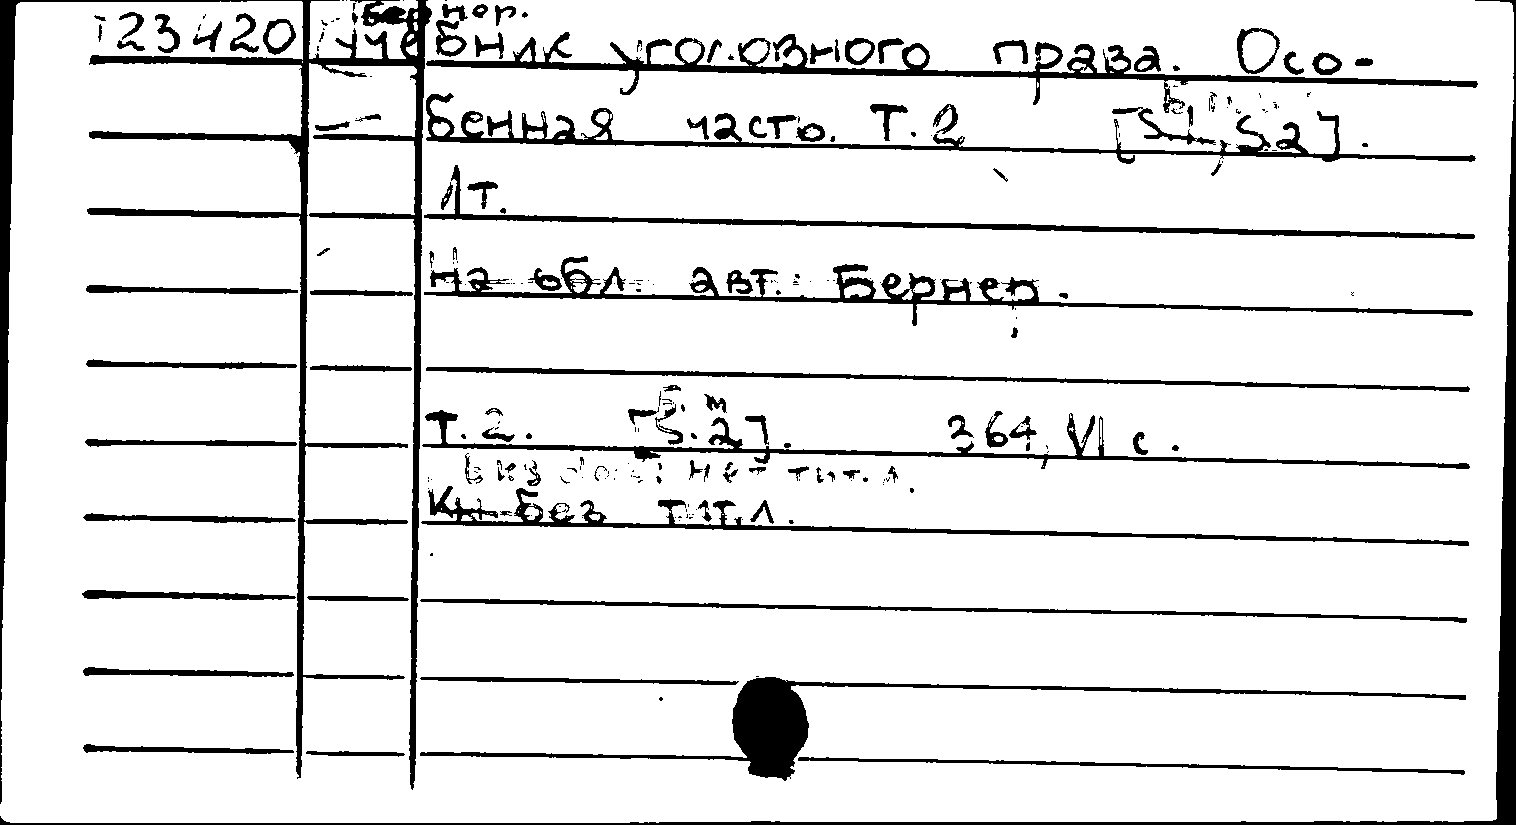 Бернер.
123420 Учебник уголовного права. Осо-
бенная часть. Т. 2 [S.l., S.a].
1т.
На обл. авт.: Бернер.
Т. 2. [S.a]. 364, VI с.
В кн. нет тит. л.
Кн без тит. л.